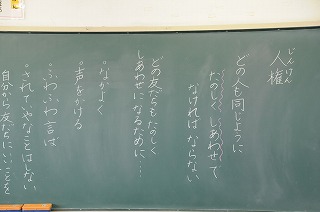 じんけん
人権
どの人も同じように
たのしく しあわせで
なければ ならない
どの友だちも たのしく
しあわせになるために…
・なかよく
・声をかける
・ふわふわ言ば
・されていやなことはしない
自分から友だちにいいことを